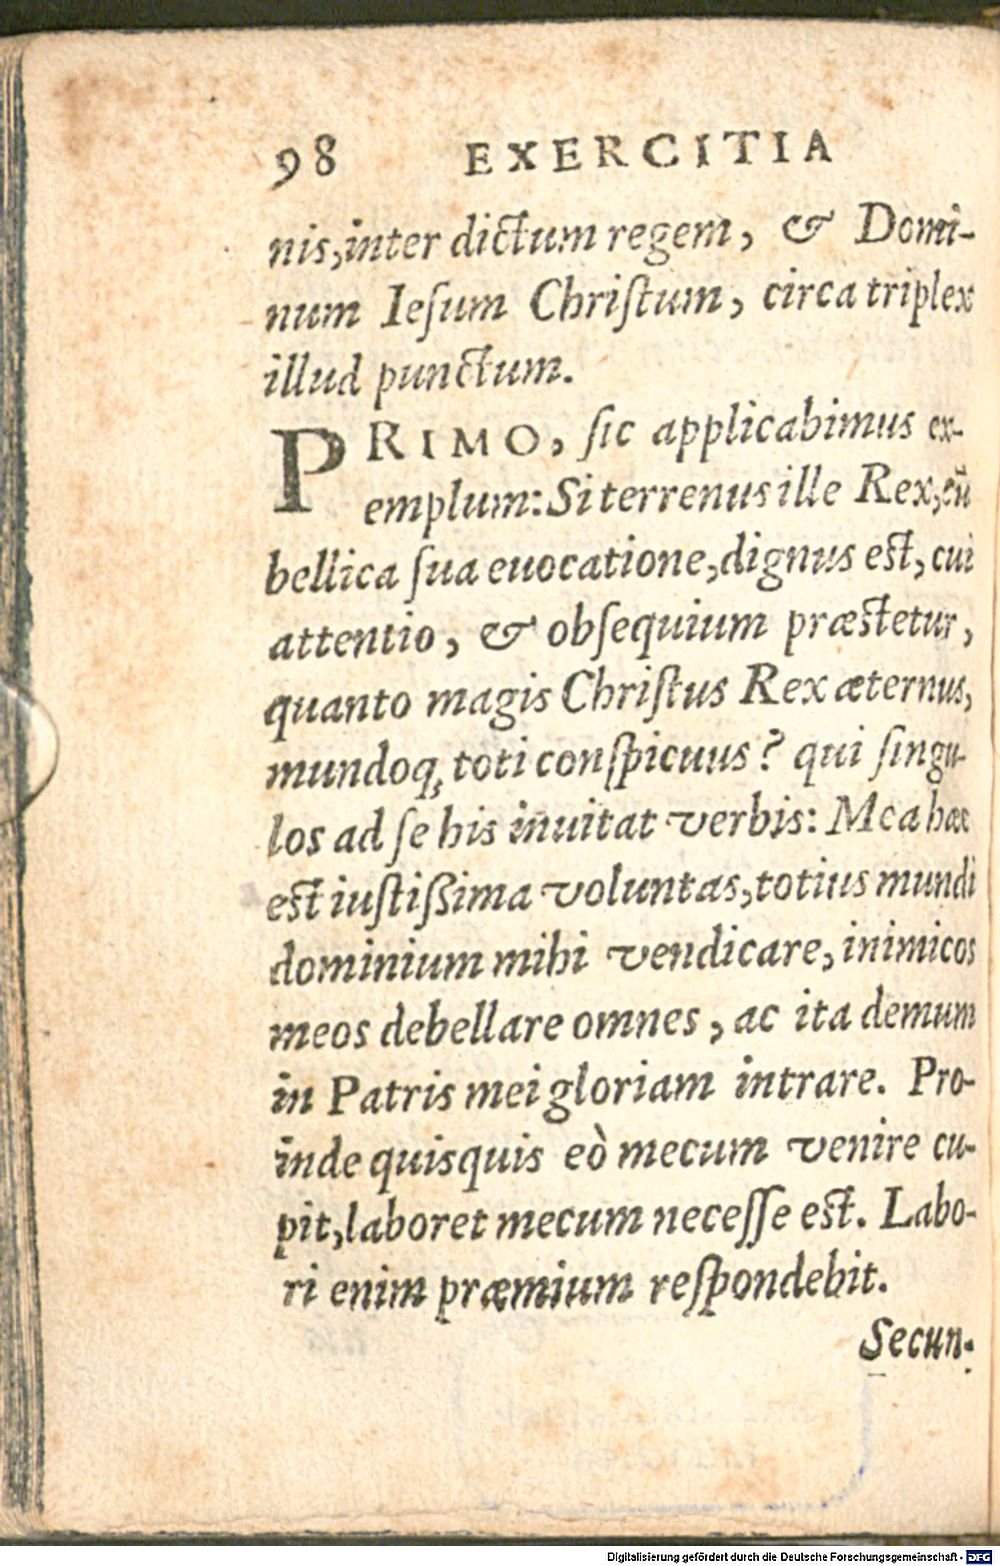 98 EXERCITIA
nis, inter dictum regem, & Domi-
num Ieſum Chriſtum, circa triplex
illud punctum.
PRIMO, ſic applicabimus ex-
emplum: Si terrenus ille Rex, cū
bellica ſua euocatione, dignus eſt, cui
attentio, & obſequium præſtetur,
quanto magis Chriſtus Rex æternus,
mundoq; toti conſpicuus? qui ſingu-
los ad ſe his inuitat verbis: Mea hæc
eſt iuſtiſſima voluntas, totius mundi
dominium mihi vendicare, inimicos
meos debellare omnes, ac ita demum
in Patris mei gloriam intrare. Pro-
inde quisquis eò mecum venire cu-
pit, laboret mecum neceſſe eſt. Labo-
ri enim præmium reſpondebit.
Secun-
Digitalisierung gefördert durch die Deutsche Forschungsgemeinschaft - DFG